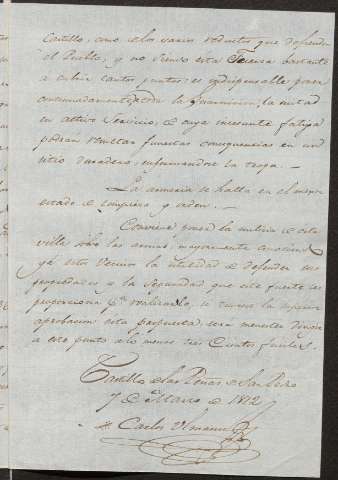 Castillo, como a los varios reductos que defienden
el Pueblo, y no siendo esta Fuerza bastante
a cubrir tantos puntos; es indispensable pase
continuadamente la Guarnicion, la mitad
en activo Servicio, de cuya incesante fatiga
podrian resultar funestas consequencias en un
sitio duradero, enfermandose la tropa.—
La armeria se halla en el mejor
estado de limpieza y orden.—
Conviene poner la milicia de esta
villa sobre las armas, mayormente
ya estos Vecinos la utilidad de defender sus
propiedades, a la seguridad que este fuerte les
proporciona pa. realizarlo, si tuviese la superior
aprobacion esta propuesta, será menester dirigir
a este punto a lo menos tres Cientos fusiles.
Castillo de las Peñas de San Pedro
7 de Marzo de 1812
Carlos Ulmann